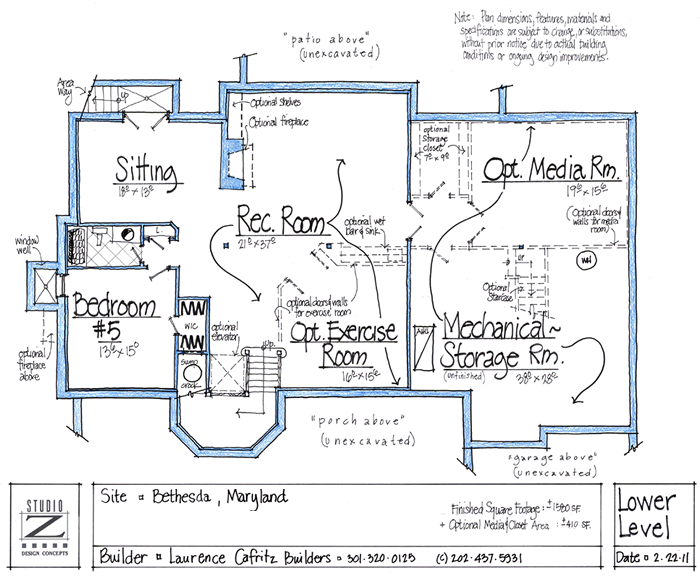 Note: Plan dimensions, features, materials and
specifications are subject to change, or substitutions,
without prior notice due to actual building
conditions or ongoing design improvements.
"patio above"
(unexcavated)
Area
Way
up
optional shelves
optional fireplace
Sitting
optional
storage
closet
Opt. Media Rm.
(optional doors/
walls for media
room)
Rec. Room
optional wet
bar & sink
window
well
L.
WH
up
optional
staircase
Bedroom
#5
W.I.C.
optional
elevator
optional doors/walls
for exercise room
Opt. Exercise
Room
up
Mechanical ~
Storage Rm.
(unfinished)
optional
fireplace
above
sump
"porch above"
(unexcavated)
"garage above"
(unexcavated)
STUDIO
Z
DESIGN CONCEPTS
Site ¤ Bethesda, Maryland
Finished Square Footage: ±1580 SF.
+ Optional Media & Closet Area: ±410 SF.
Builder ¤ Laurence Cafritz Builders ¤ 301·320·0125 (c) 202·437·5931
Lower
Level
Date ¤ 2·22·11